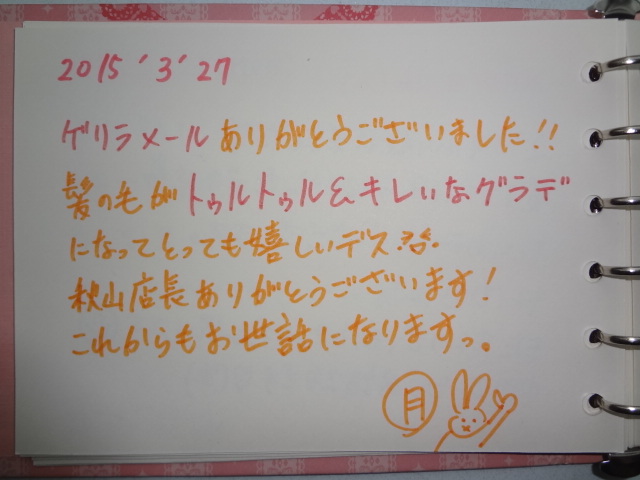 2015 '3' 27
ゲリラメールありがとうございました!!
髪の毛がトゥルトゥル&キレいなグラデ
になってとっても嬉しいデス
秋山店長ありがとうございます!
これからもお世話になりますっ。
月